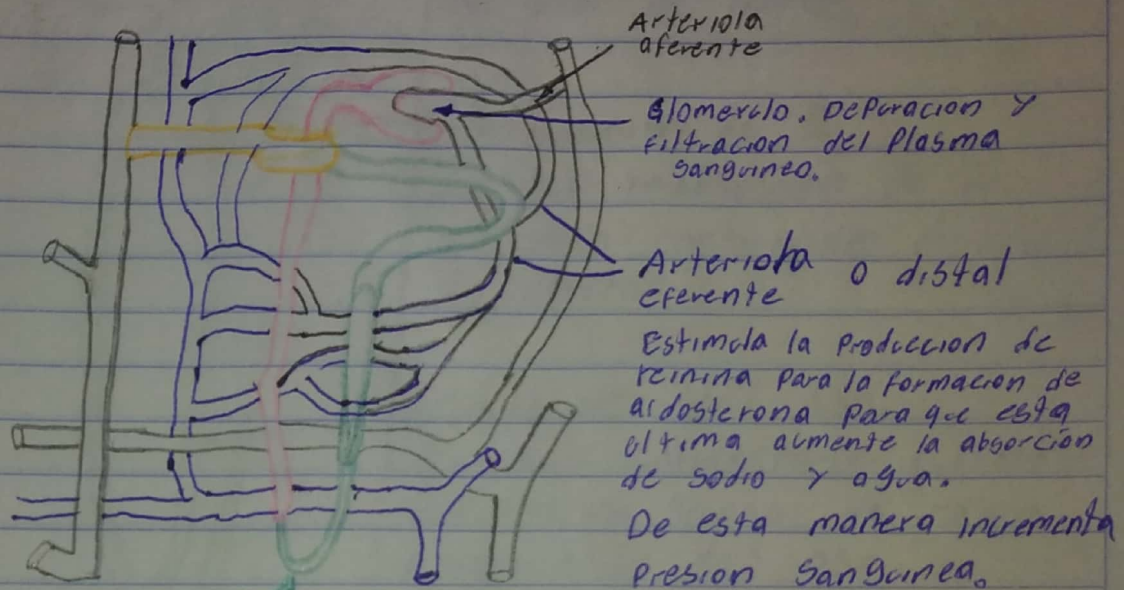 Arteriola
aferente
Glomerulo. Depuracion y
filtracion del Plasma
sanguineo.
Arteriola o distal
eferente
Estimula la Produccion de
reinina para la formacion de
aldosterona Para que esta
ultima aumente la absorción
de sodio y agua.
De esta manera incrementa
Presion Sanguinea.